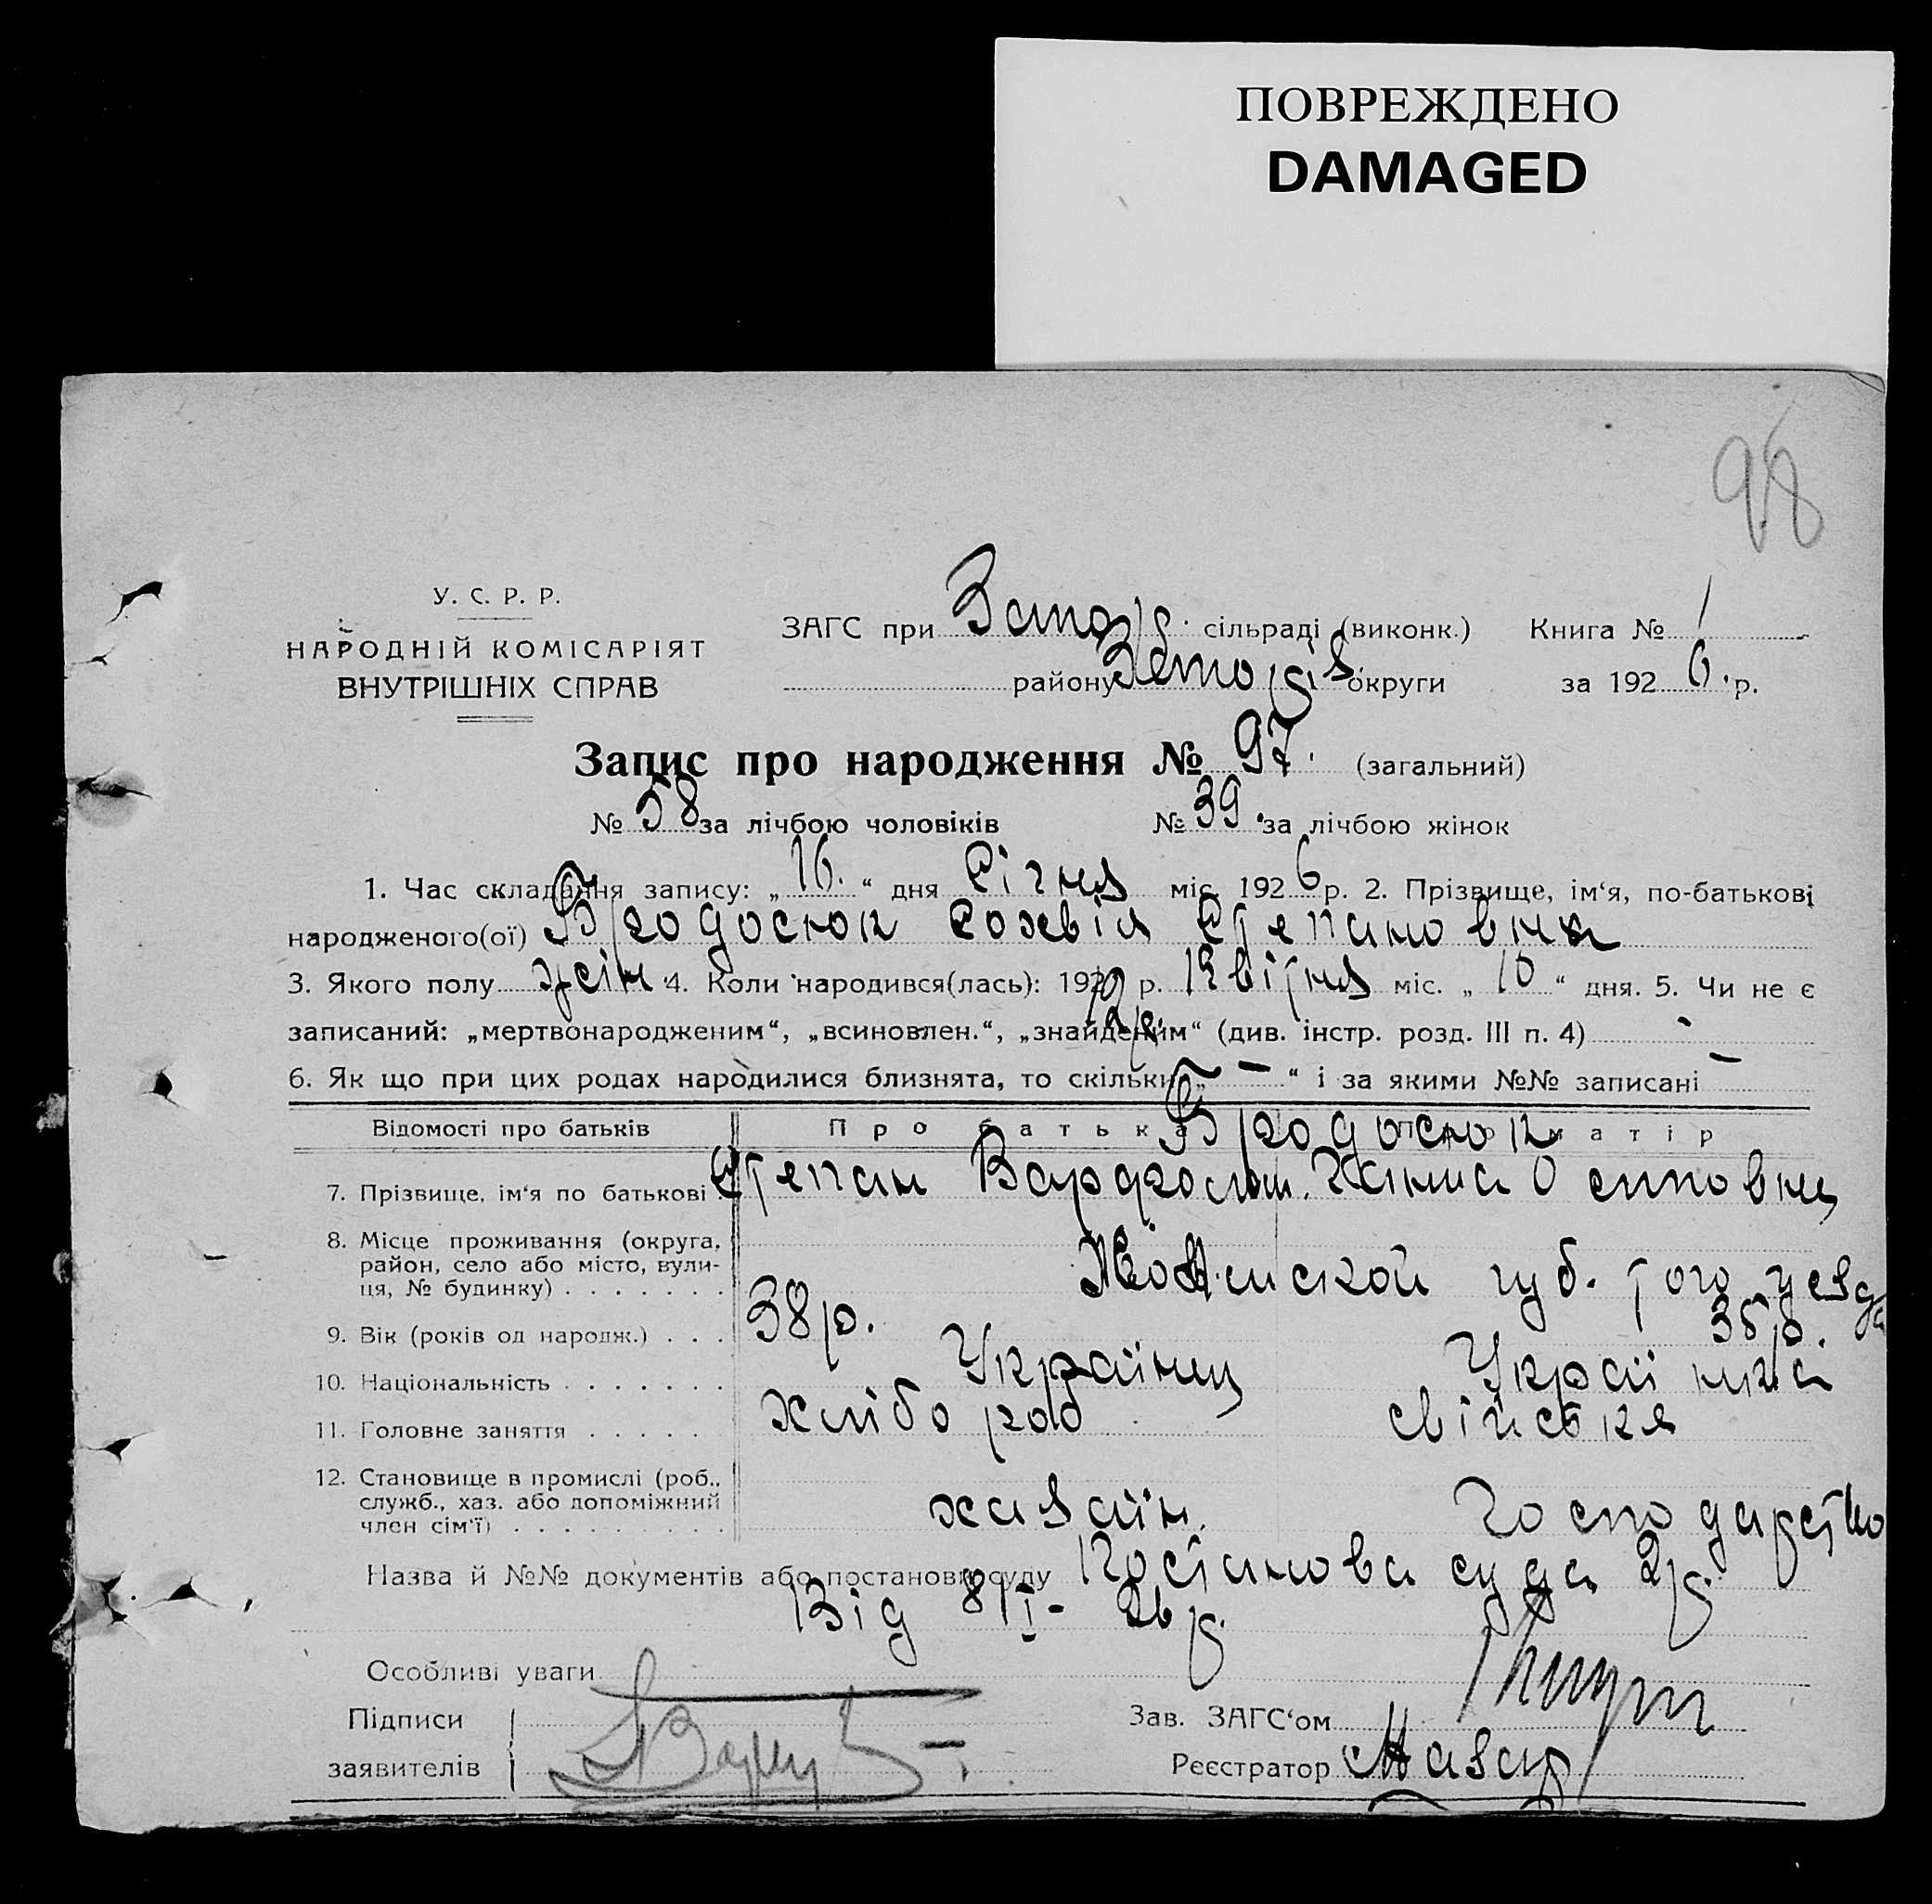 ПОВРЕЖДЕНО
DAMAGED
98
У. С. Р. Р.
НАРОДНІЙ КОМІСАРІЯТ
ВНУТРІШНІХ СПРАВ
ЗАГС при сільраді (виконк.) Книга № 1
району округи за 1926. р.
Запис про народження № 97. (загальний)
№ 58 за лічбою чоловіків № 39. за лічбою жінок
1. Час складання запису: „16.“ дня Січня міс. 1926 р. 2. Прізвище, ім‘я, по-батькові
народженого(ої) Софія Степановна
3. Якого полу жін. 4. Коли народився(лась): 192 р. Квітня міс. „10“ дня. 5. Чи не є
записаний: „мертвонародженим“, „всиновлен.“, „знайденим“ (див. інстр. розд. III п. 4) -
6. Як що при цих родах народилися близнята, то скільки „—“ і за якими №№ записані —
Відомості про батьків Про батька Про матір
7. Прізвище, ім‘я по батькові Степан Осиповна
8. Місце проживання (округа,
район, село або місто, вули-
ця, № будинку) . . . . . . . губ. того уезда
9. Вік (років од народж.) . . . 38 р. 35 р.
10. Національність . . . . . . . Українец Українка
11. Головне заняття . . . . . хлібороб свійська
12. Становище в промислі (роб.,
служб., хаз. або допоміжний
член сім‘ї) . . . . . . . . . хазаїн. господарство
Назва й №№ документів або постанови суду Постанова суда 2 р.
Від 8/I- 26 р.
Особливі уваги
Підписи
заявителів
Зав. ЗАГС‘ом
Реєстратор